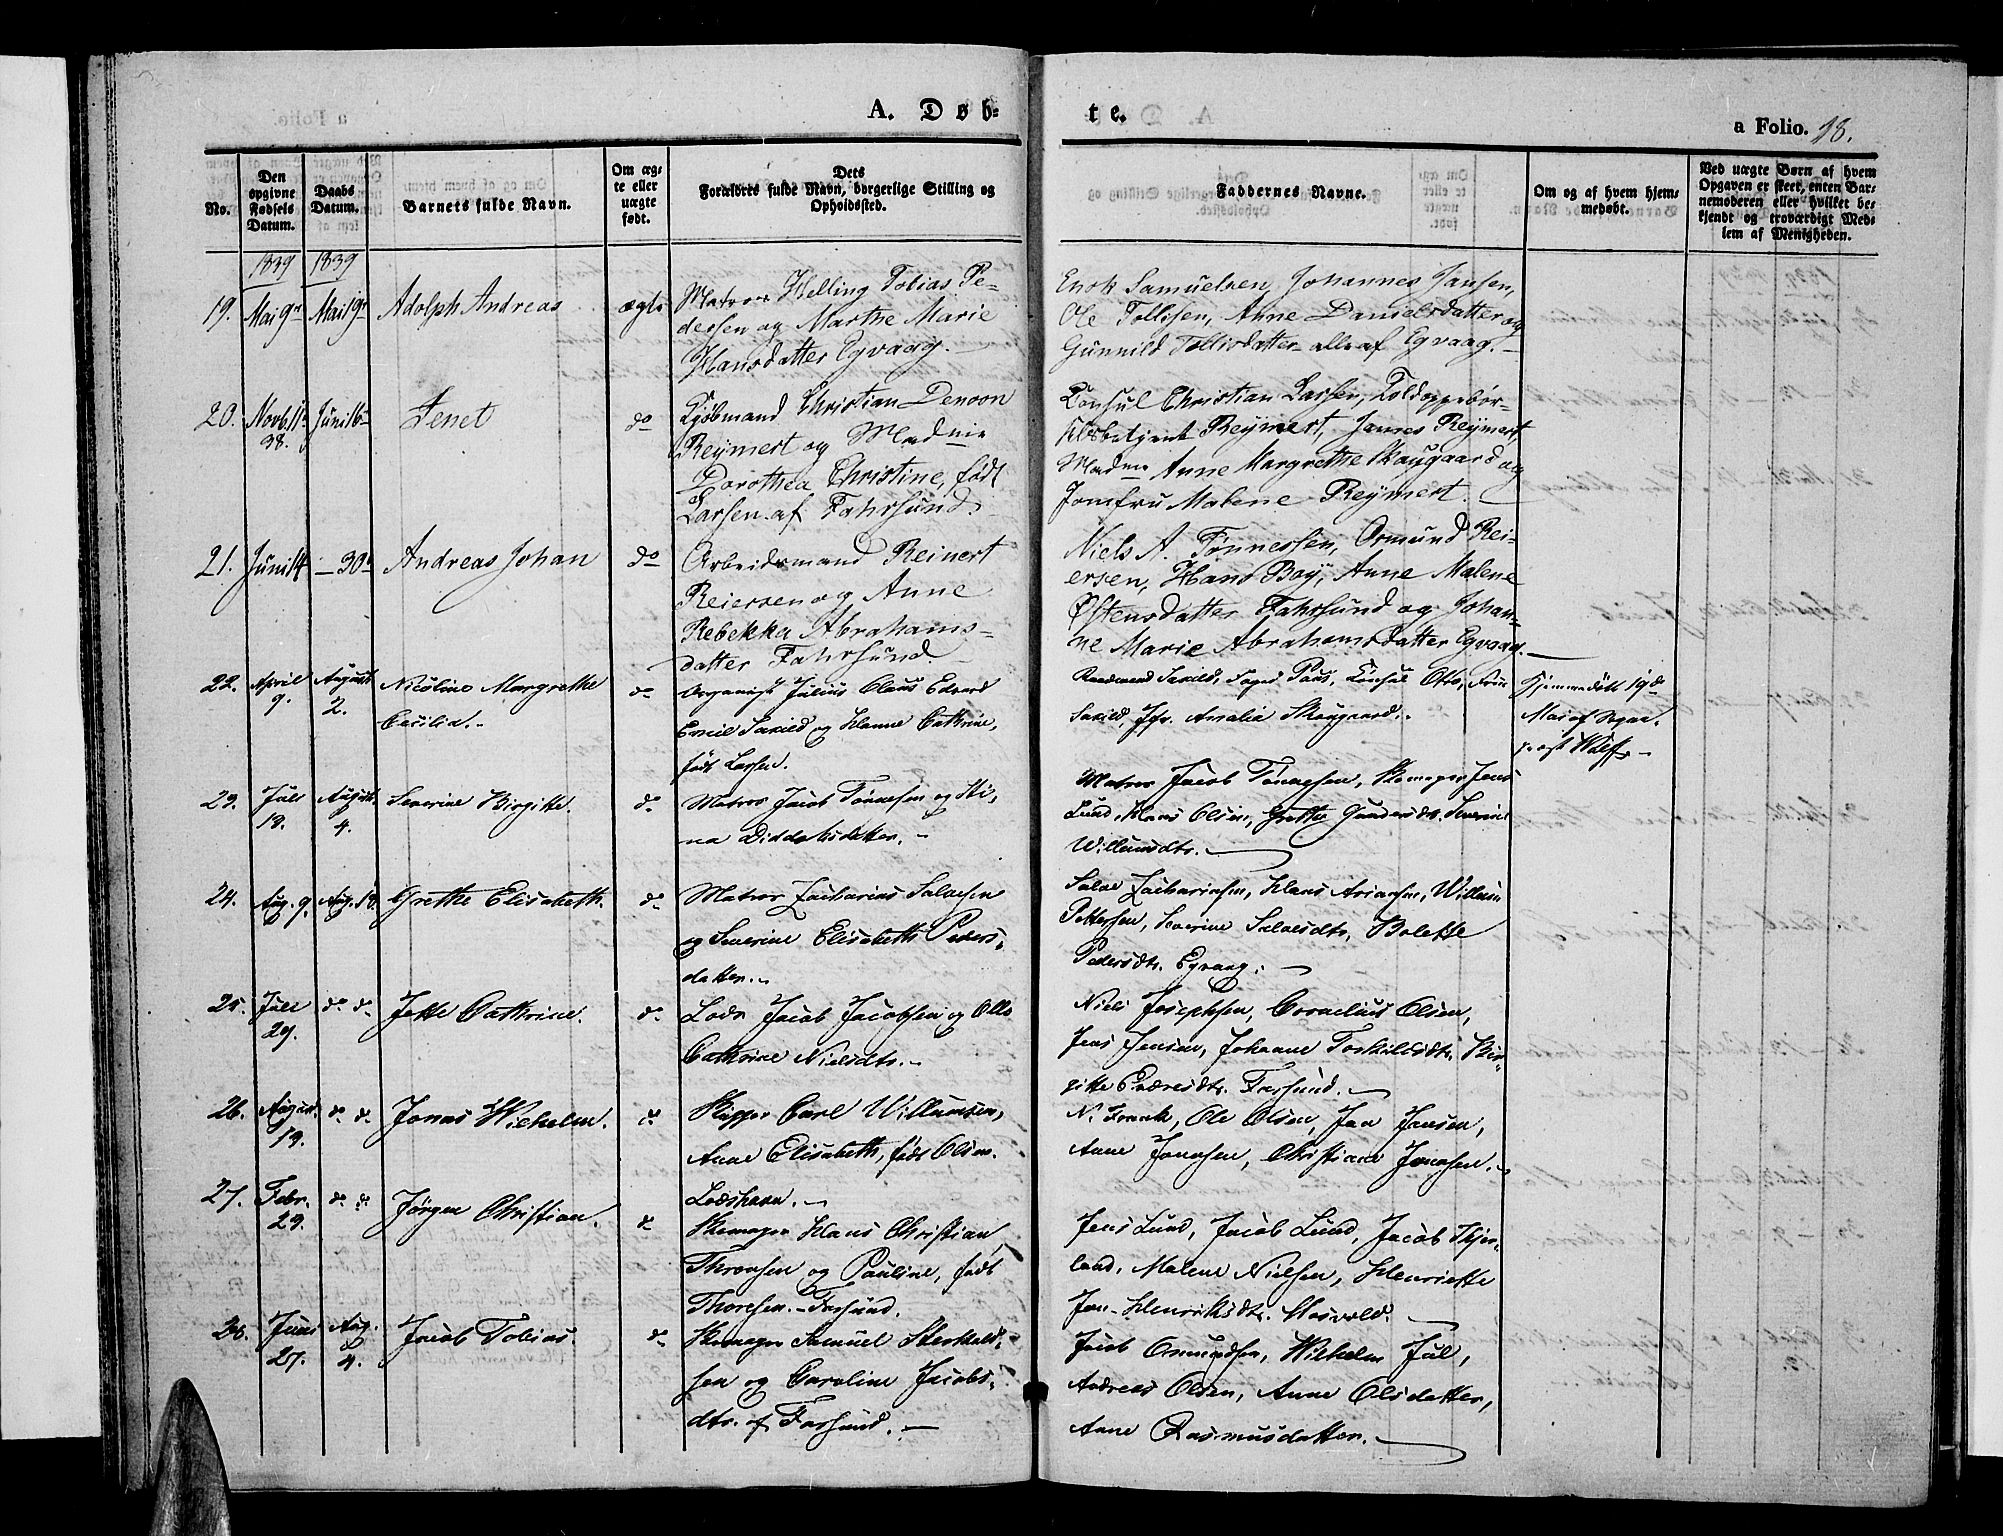 A. Døb-
te.
a Folio. 18.
No.
Den opgivne Fødsels Datum.
Daabs Datum.
Barnets fulde Navn.
Om ægte eller uægte født.
Dets Forældres fulde Navn, borgerlige Stilling og Opholdssted.
Faddernes Navne.
Om og af hvem hjemmedøbt.
Ved uægte Børn af hvem Opgaven er skeet, enten Barnemoderen eller hvilket bekjendt og troværdigt Medlem af Menigheden.
1839 1839
19. Mai 9de Mai 19de Adolph Andreas ægte
Matros Helling Tobias Pe-
dersen og Marthe Marie
Hansdatter Egvaag.
Enok Samuelsen, Johannes Jansen,
Ole Tollisen, Anne Danielsdatter og
Gunnild Tollisdatter alle af Egvaag.
20. Novb. 11te 38. Juni 16de Jenet do
Kjøbmand Christian Denoon
Reymert og Madme
Dorothea Christine, født
Larsen af Fahrsund.
Konsul Christian Larsen, Toldoppebør-
selsbetjent Reymert, James Reymert
Madme Anne Margrethe Skougaard og
Jomfru Malene Reymert.
21. Juni 14 — 30te Andreas Johan do
Arbeidsmand Reinert
Reiersen og Anne
Rebekka Abrahams-
datter Fahrsund.
Niels A. Tønnessen, Ormund Rei-
ersen, Hans Boy, Anne Malene
Østensdatter Fahrsund og Johan-
ne Marie Abrahamsdatter Egvaag.
22. April 9. August 2. Nicoline Margrethe
Cecilia. do
Organist Julius Claus Edvard
Emil Saxild og Hanne Cathrine,
født Larsen.
Raadmand Saxild, Foged Paus, Consul Otto, Frue
Saxild, Jfr. Amalia Skougaard.
Hjemmedøbt 19de
Mai af Sogne-
præst Wulff.
23. Juli 18. August 4. Severine Birgitte. do
Matros Jacob Tønnesen og Sti-
na Diddaksdatter.
Matros Jacob Tønnesen, Skomager Jens
Lund, Hans Olsen, Grethe Gundersdtr. Severine
Willumsdtr.
24. Aug. 9. Aug. 18. Grethe Elisabeth. do
Matros Zacharias Salvesen
og Severine Elisabeth Peders-
datter.
Salve Zachariasen, Hans Ariansen, Willum
Pettersen, Severine Salvesdtr, Bolette
Pedersdtr. Egvaag.
25. Juli 29. do do Jette Cathrine. do
Lods Jacob Jacobsen og Olle
Cathrine Nielsdtr.
Niels Josephsen, Cornelius Olsen,
Jens Jensen, Johanne Torkildsdtr, Bir-
gitte Endresdtr. Farsund.
26. August 19. do do Jonas Wilhelm. do
Skipper Carl Willumsen,
Anne Elisabeth, født Olsen.
Lodshavn.
N. Frank, Ole Olsen, Jan Jansen,
Anne Jonasen, Christiane Jonasen.
27. Febr. 29. do do Jørgen Christian. do
Skomager Hans Christian
Thronsen og Pauline, født
Thoresen. Farsund.
Jens Lund, Jacob Lund, Jacob Thjør-
land, Malene Nielsen, Henriette
Jon-Henriksdtr. Mosvold.
28. Juni 27. Aug. 4. Jacob Tobias. do
Skomager Samuel Sterkeld-
sen og Caroline Jacobs-
dtr. af Farsund.
Jacob Osmundsen, Wilhelm Jul,
Andreas Olsen, Anne Olsdatter,
Anne Rasmusdatter.